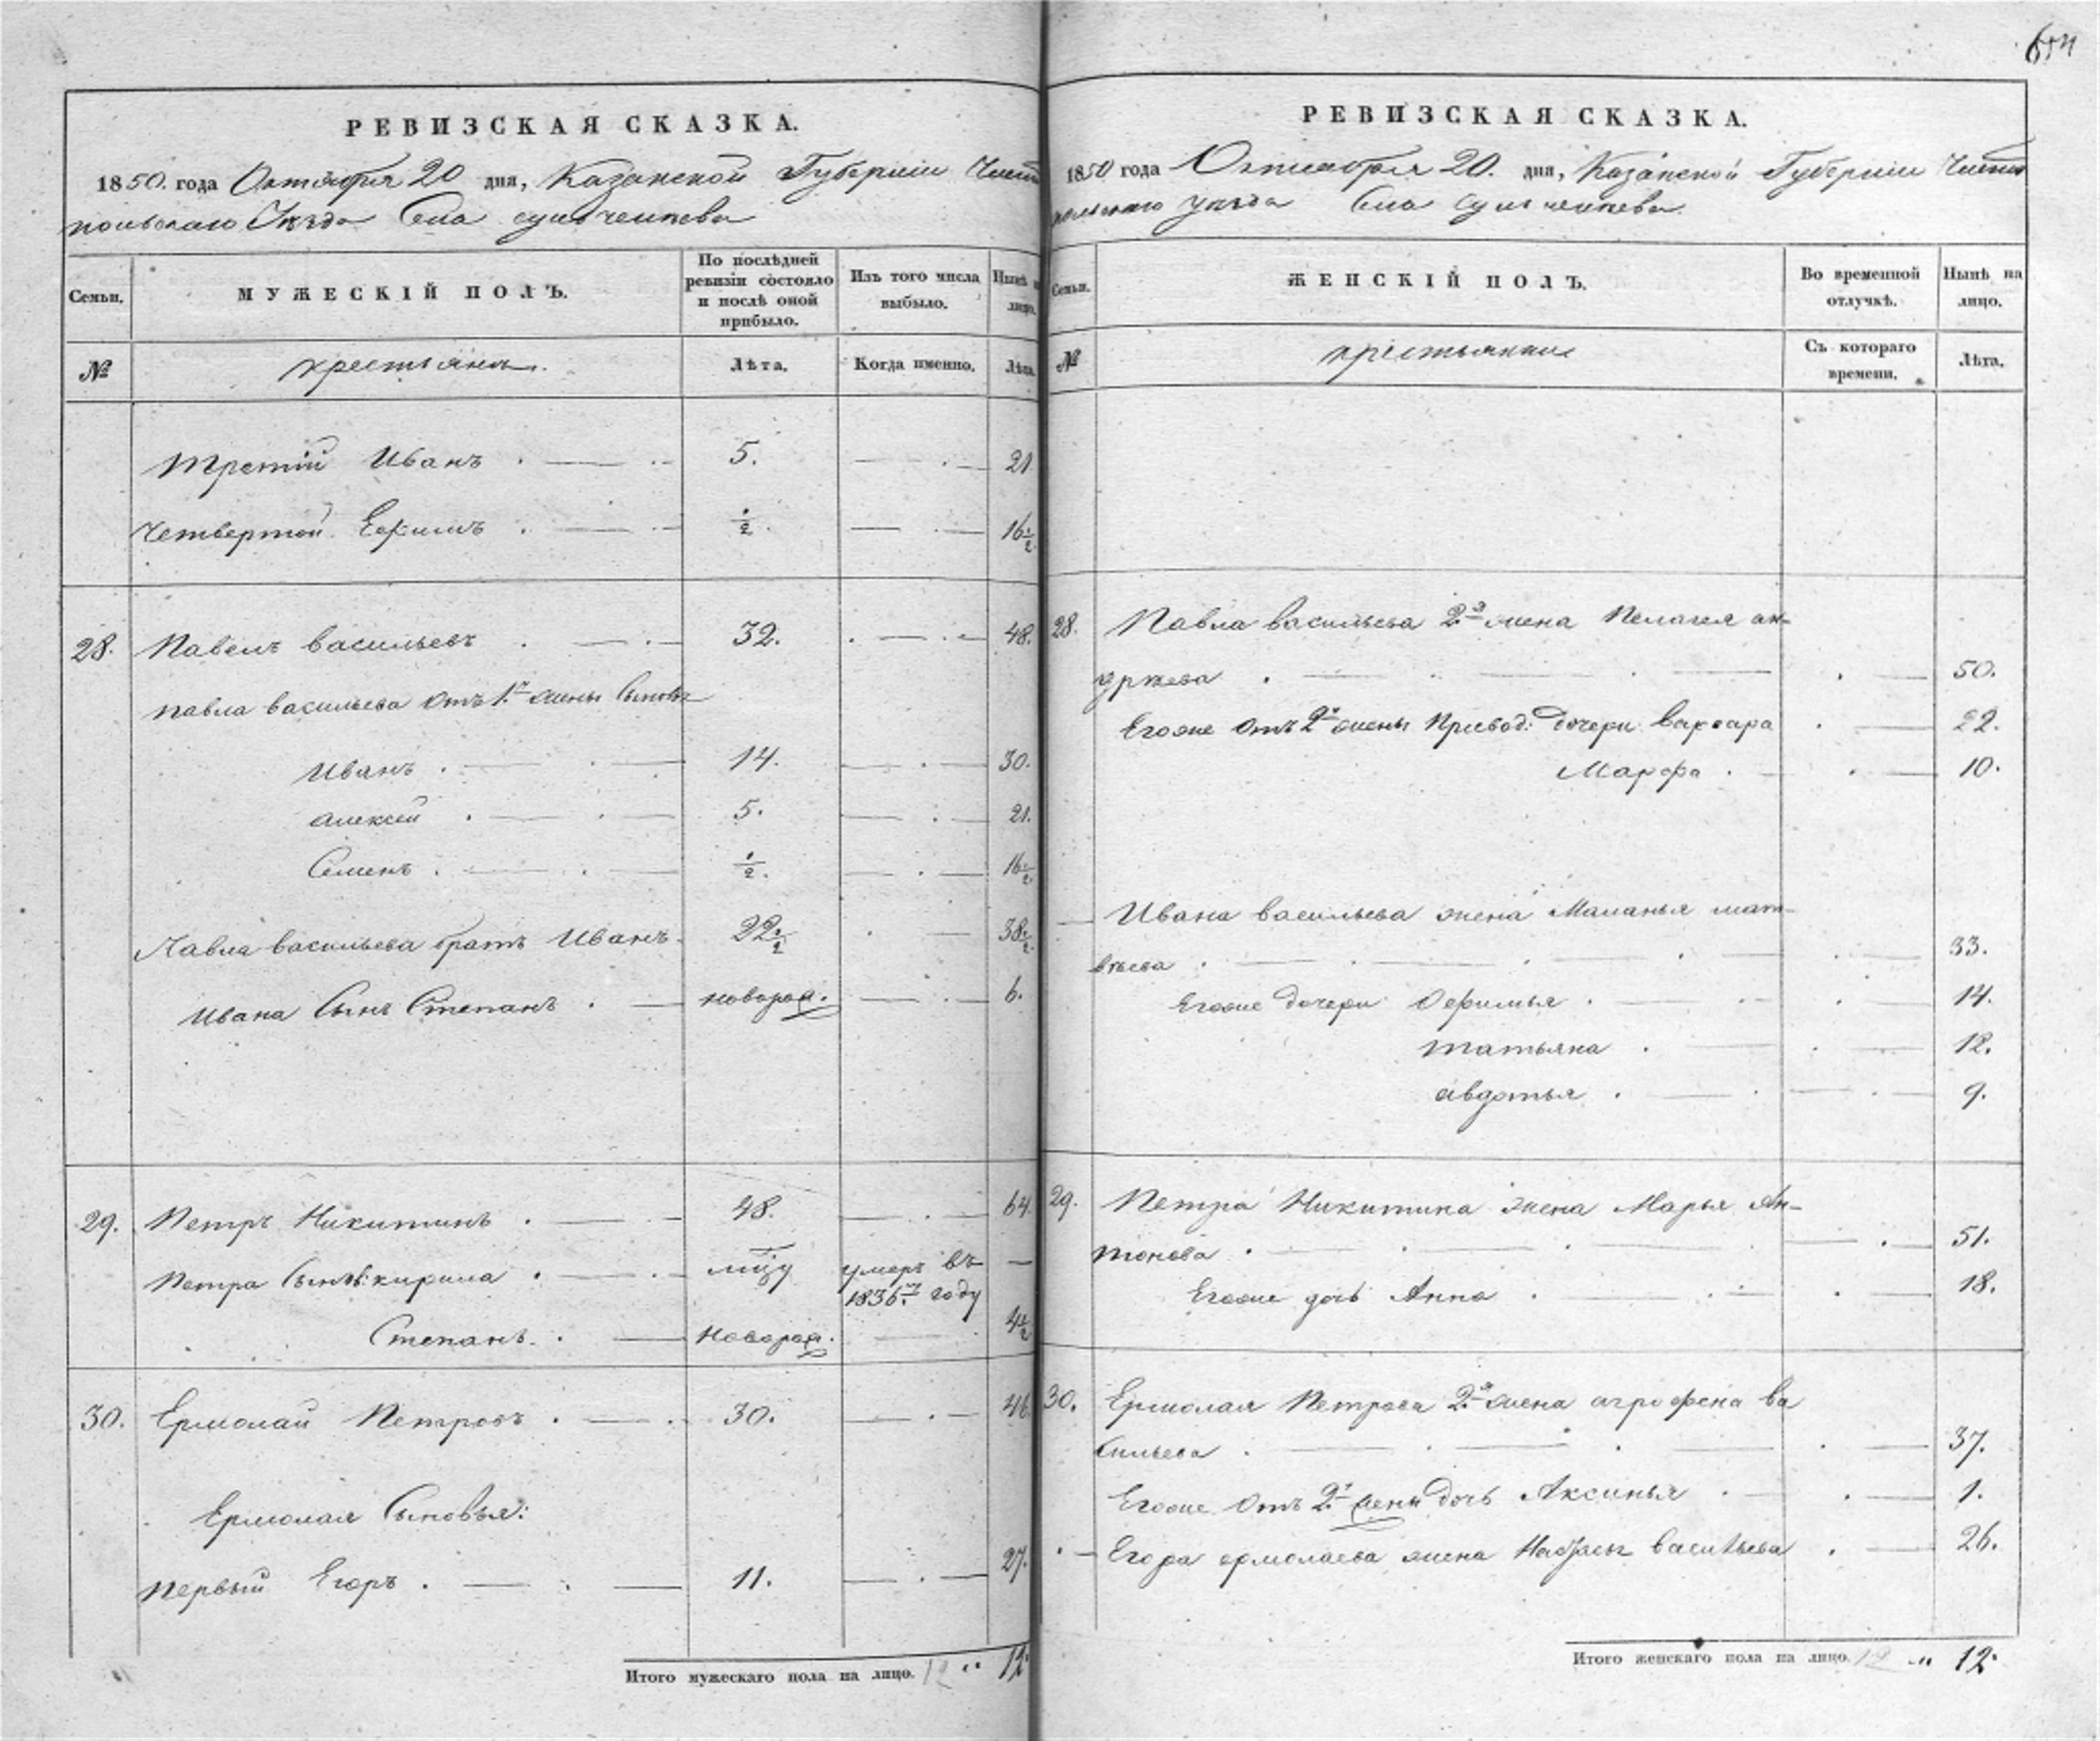 РЕВИЗСКАЯ СКАЗКА.
1850. года Октября 20 дня, Казанской Губернии Чисто
польскаго Уезда Села
Семьи.
МУЖЕСКІЙ ПОЛЪ.
По послѣдней ревизіи состояло и послѣ оной прибыло.
Изъ того числа выбыло.
Нынѣ на лицо.
№
крестьянъ.
Лѣта.
Когда именно.
Лѣта.
Третій Иванъ 5. 21
Четвертой Ефимъ 1/2. 16 1/2
28. Павелъ васильевъ 32. 48.
павла васильева отъ 1й жены Сыновья
Иванъ 14. 30.
алексей 5. 21.
Семенъ 1/2. 16 1/2
Павла васильева братъ Иванъ 22 1/2 38 1/2
Ивана Сынъ Степанъ новорож. 6.
29. Петръ Никитинъ 48. 64.
Петра Сынъ: кирила умеръ въ —
1836м году
Степанъ. новорож. 4 1/2
30. Ермолай Петровъ 30. 46
Ермолая Сыновья:
первый Егоръ 11. 27.
Итого мужескаго пола на лицо. 12 „ 12.
654
РЕВИЗСКАЯ СКАЗКА.
1850 года Октября 20. дня, Казанской Губернии Чисто
польскаго уезда Села
Семьи.
ЖЕНСКІЙ ПОЛЪ.
Во временной отлучкѣ.
Нынѣ на лицо.
№
крестьянки
Съ котораго времени.
Лѣта.
28. Павла васильева 2я жена Пелагея ан-
дреева 50.
Егоже отъ 2й жены Привод: дочери варвара 22.
Марфа 10.
Ивана васильева жена Маланья мат-
веева 33.
Егоже дочери Офимья 14.
татьяна 12.
авдотья 9.
29. Петра Никитина жена Марья Ан-
тонова 51.
Егоже дочь Анна 18.
30. Ермолая Петрова 2я жена агрофена ва
сильева 37.
Егоже отъ 2й жены дочь Аксинья 1.
Егора ермолаева жена васильева 26.
Итого женскаго пола на лицо. 12 „ 12.